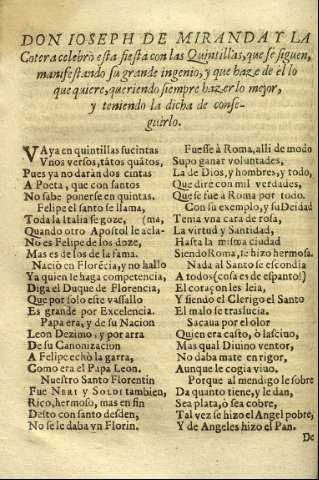 DON IOSEPH DE MIRANDA Y LA
Cotera celebrò esta fiesta con las Quintillas, que se siguen,
manifestando su grande ingenio, y que haze de èl lo
que quiere, queriendo siempre hazer lo mejor,
y teniendo la dicha de conse-
guirlo.
VAya en quintillas sucintas
Vnos versos, tãtos quãtos,
Pues ya no daràn dos cintas
A Poeta, que con santos
No sabe ponerse en quintas.
Felipe el santo se llama,
Toda la Italia se goze, (ma,
Quando otro Apostol le acla-
No es Felipe de los doze,
Mas es de los de la fama.
Naciò en Florēcia, y no hallo
Ya quien le haga competencia,
Diga el Duque de Florencia,
Que por solo este vassallo
Es grande por Excelencia.
Papa era, y de su Nacion
Leon Dezimo, y por arra
De su Canonizacion
A Felipe echò la garra,
Como era el Papa Leon.
Nuestro Santo Florentin
Fue NERI y SOLDI tambien,
Rico, hermoso, mas en fin
Desto con santo desden,
No se le daba vn Florin.
Fuesse à Roma, alli de modo
Supo ganar voluntades,
La de Dios, y hombres, y todo,
Que dirè con mil verdades,
Que se fue à Roma por todo.
Con su exemplo, y su Deidad
Tema vna cara de rosa,
La virtud y Santidad,
Hasta la misma ciudad
Siendo Roma, se hizo hermosa.
Nada al Santo se escondia
A todos (cosa es de espanto!)
El coraçon les leia,
Y siendo el Clerigo el Santo
El malo se traslucia.
Sacaua por el olor
Quien era casto, ò lasciuo,
Mas qual Diuino ventor,
No daba mate en rigor,
Aunque le cogia viuo.
Porque al mendigo le sobre
Da quanto tiene, y le dan,
Sea plata, ò sea cobre,
Tal vez se hizo el Angel pobre,
Y de Angeles hizo el Pan.
De